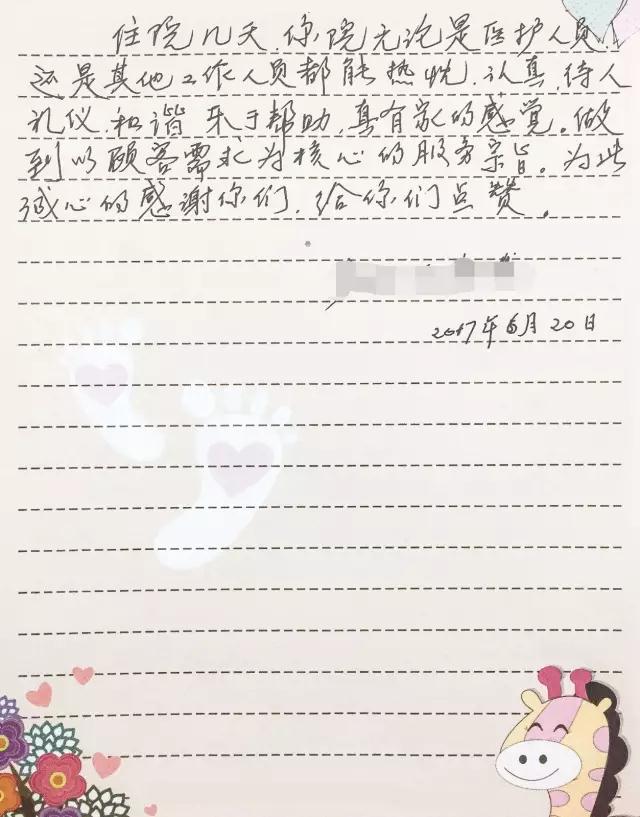 住院几天,你院无论是医护人员,
还是其他工作人员都能热忱,认真,待人
礼仪,和谐 乐于帮助,真有家的感觉。做
到以顾客需求为核心的服务宗旨。为此
诚心的感谢你们,给你们点赞。
2017年6月20日